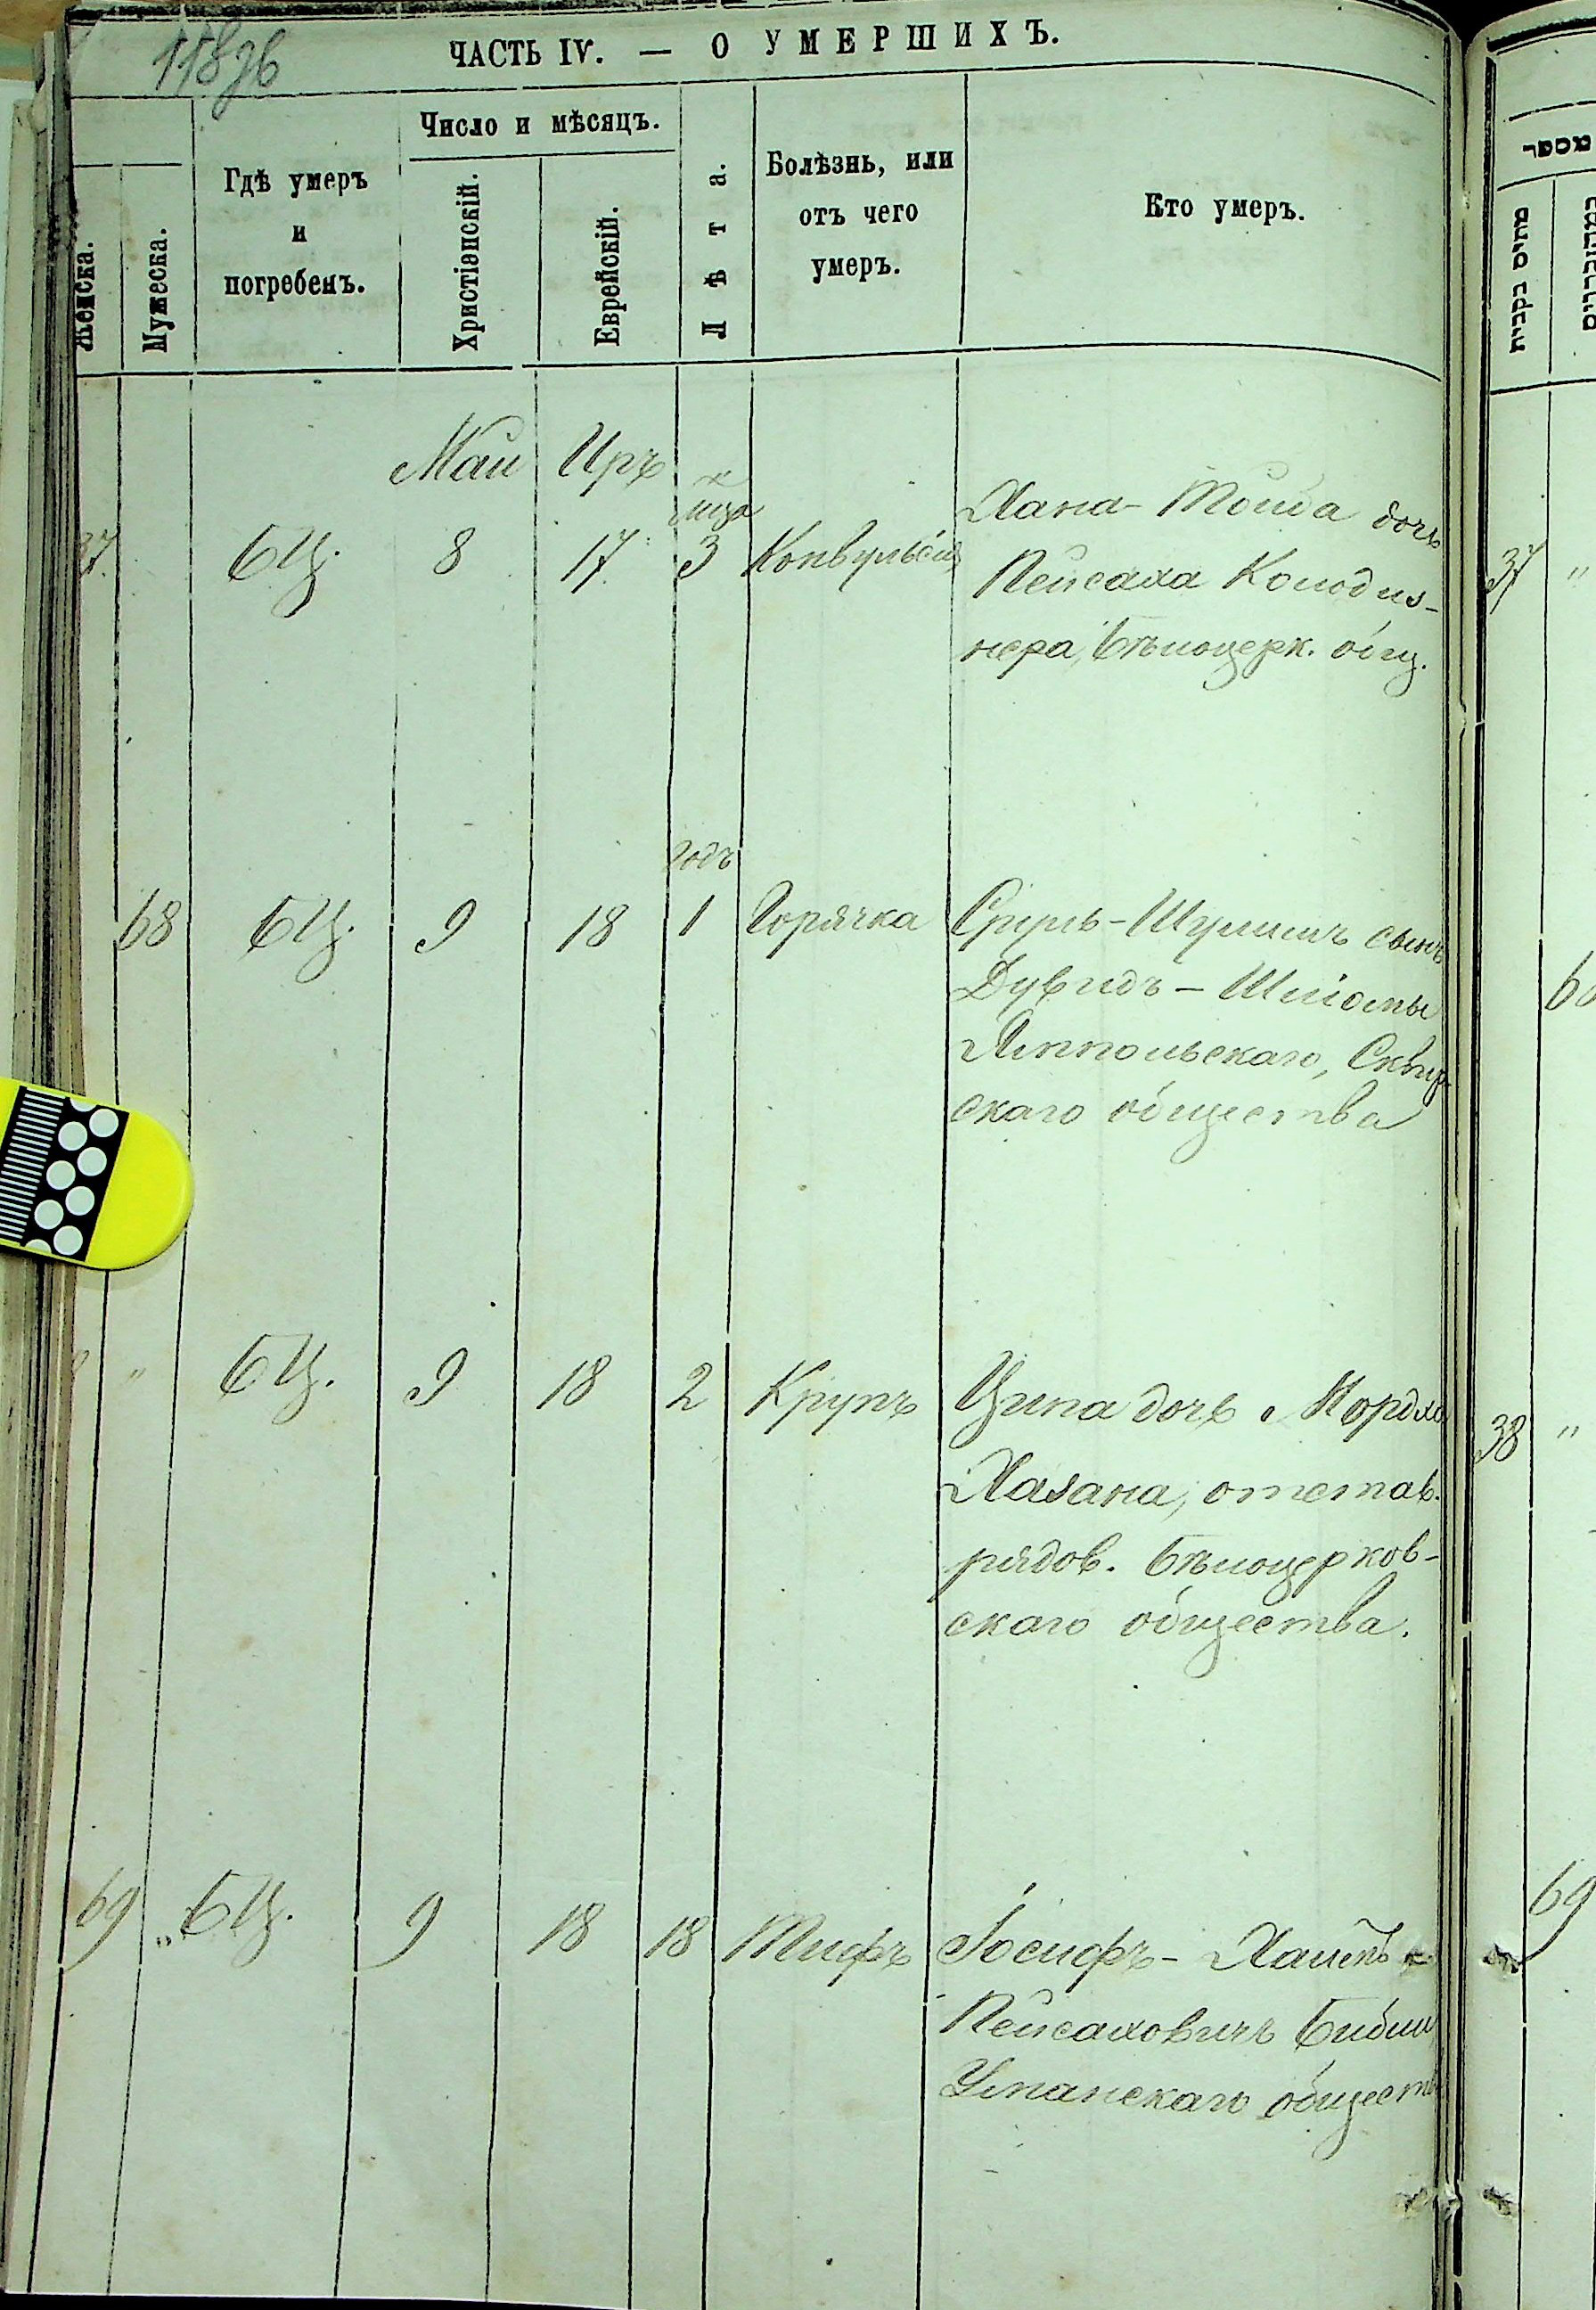 118зв
ЧАСТЬ IV. — О УМЕРШИХЪ.
Женска.
Мужеска.
Гдѣ умеръ
и
погребенъ.
Число и мѣсяцъ.
Христіенскій.
Еврейскій.
Лѣта.
Болѣзнь, или
отъ чего
умеръ.
Кто умеръ.
Маи Иръ
мца
37 БЦ. 8 17 3 Конвульсіи Хана-Тойба дочь
Пейсаха Колодиз-
нера, Бѣлоцерк. общ.
годъ
68 БЦ. 9 18 1 Горячка Сруль-Шулимъ сынъ
Дувидъ-Шліомы
Ямпольскаго, Сквир-
скаго общества
" БЦ. 9 18 2 Крупъ Ципа дочь Мордко
Хазана, отстав.
рядов. Бѣлоцерков-
скаго общества.
69 " БЦ. 9 18 18 Тифъ Іосифъ-Хаимъ
Пейсаховичъ
Уманскаго обществ
מספר
מתים בקבית
37 "
38 "
69